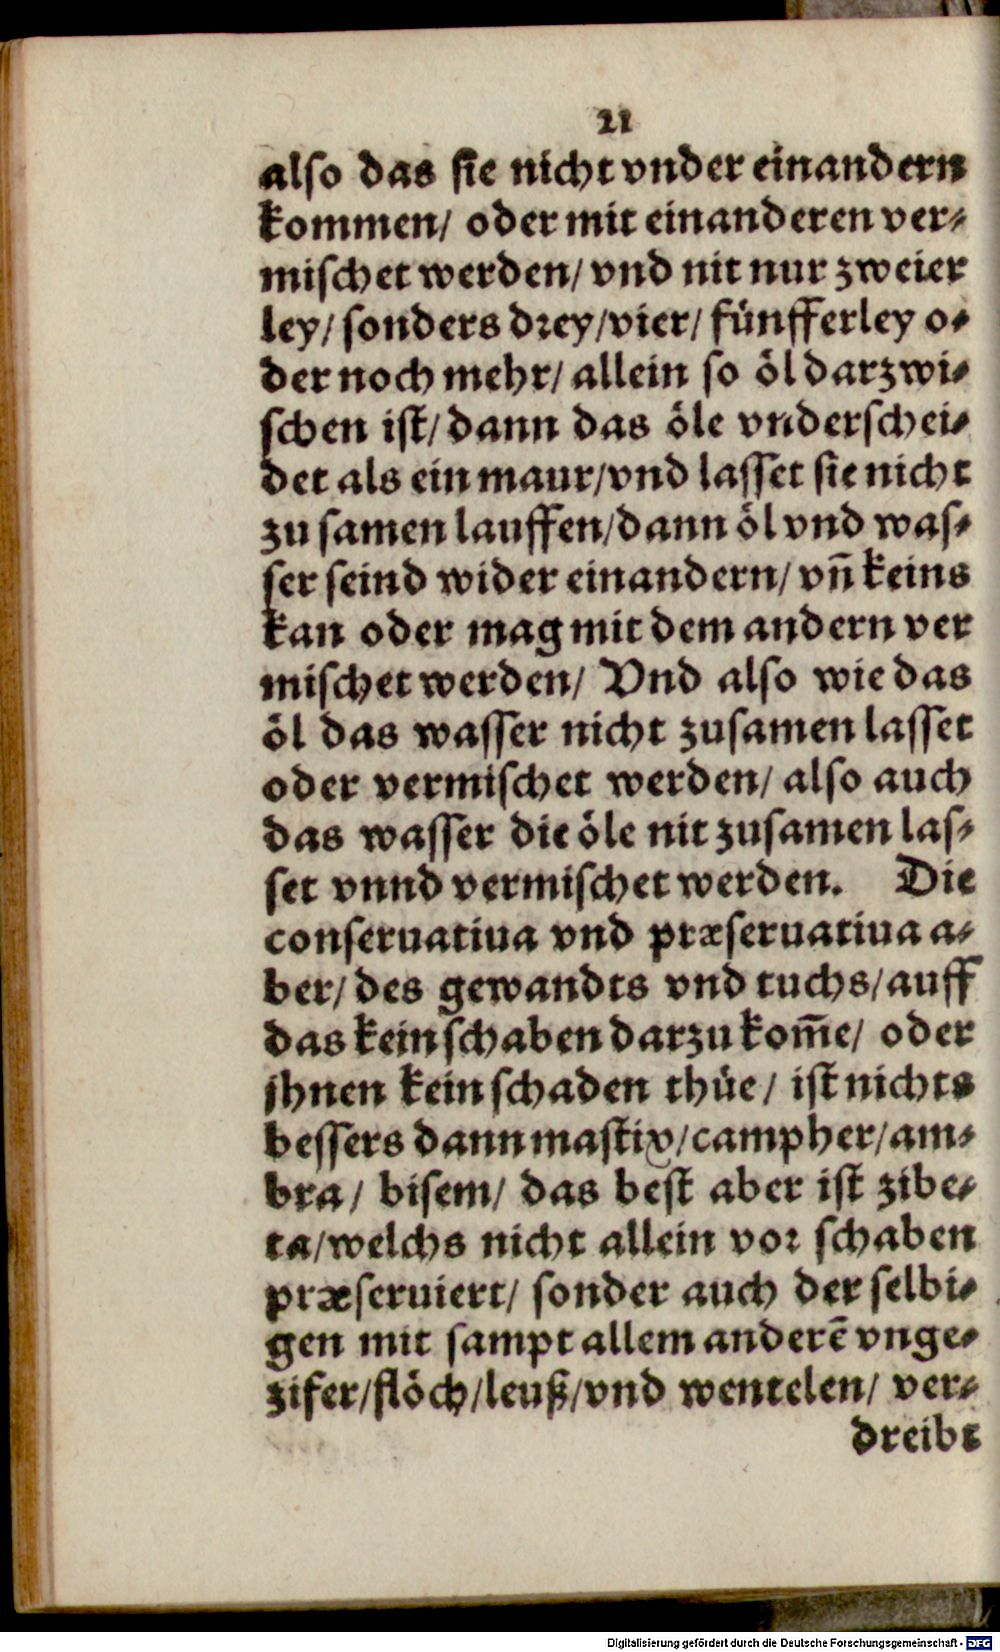 21
also das sie nicht vnder einandern
kommen/ oder mit einanderen ver⸗
mischet werden/ vnd nit nur zweier
ley/ sonders drey/vier/ fünfferley o⸗
der noch mehr/ allein so öl darzwi⸗
schen ist/ dann das öle vnderschei⸗
det als ein maur/vnd lasset sie nicht
zu samen lauffen/dann öl vnd was⸗
ser seind wider einandern/ vñ keins
kan oder mag mit dem andern ver
mischet werden/ Vnd also wie das
öl das wasser nicht zusamen lasset
oder vermischet werden/ also auch
das wasser die öle nit zusamen las⸗
set vnnd vermischet werden. Die
conseruatiua vnd præseruatiua a⸗
ber/ des gewandts vnd tuchs/ auff
das kein schaben darzu kom̃e/ oder
jhnen kein schaden thüe/ ist nichts
bessers dann mastix/campher/am⸗
bra/ bisem/ das best aber ist zibe⸗
ta/welchs nicht allein vor schaben
præseruiert/ sonder auch der selbi⸗
gen mit sampt allem anderẽ vnge⸗
zifer/flöch/leuß/vnd wentelen/ ver⸗
dreibt
Digitalisierung gefördert durch die Deutsche Forschungsgemeinschaft - DFG